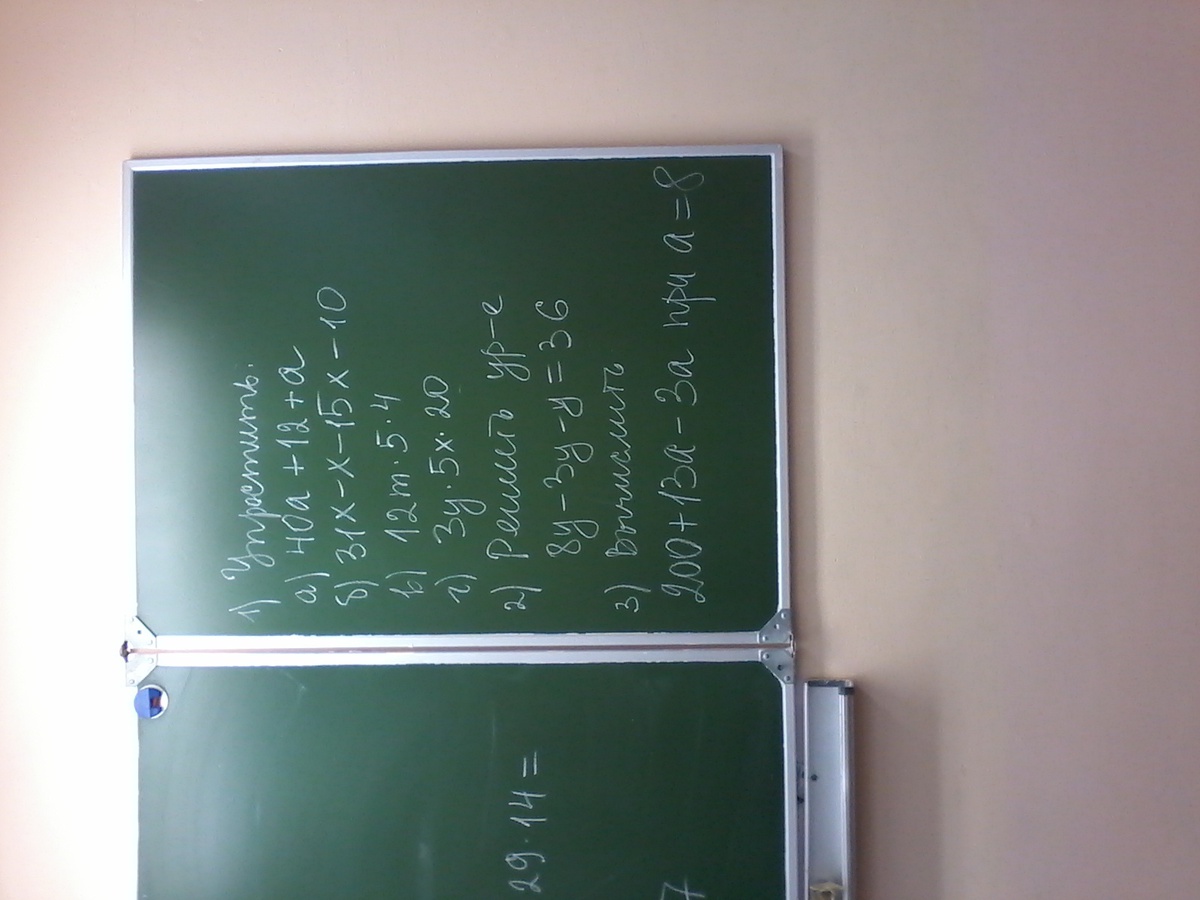 1) Упростить:
а) 40а + 12 + а
б) 31х - х - 15х - 10
в) 12m · 5 · 4
г) 3у · 5х · 20
2) Решить ур-е
8у - 3у - у = 36
3) Вычислить
200 + 13а - 3а при а = 8
29 · 14 =
7